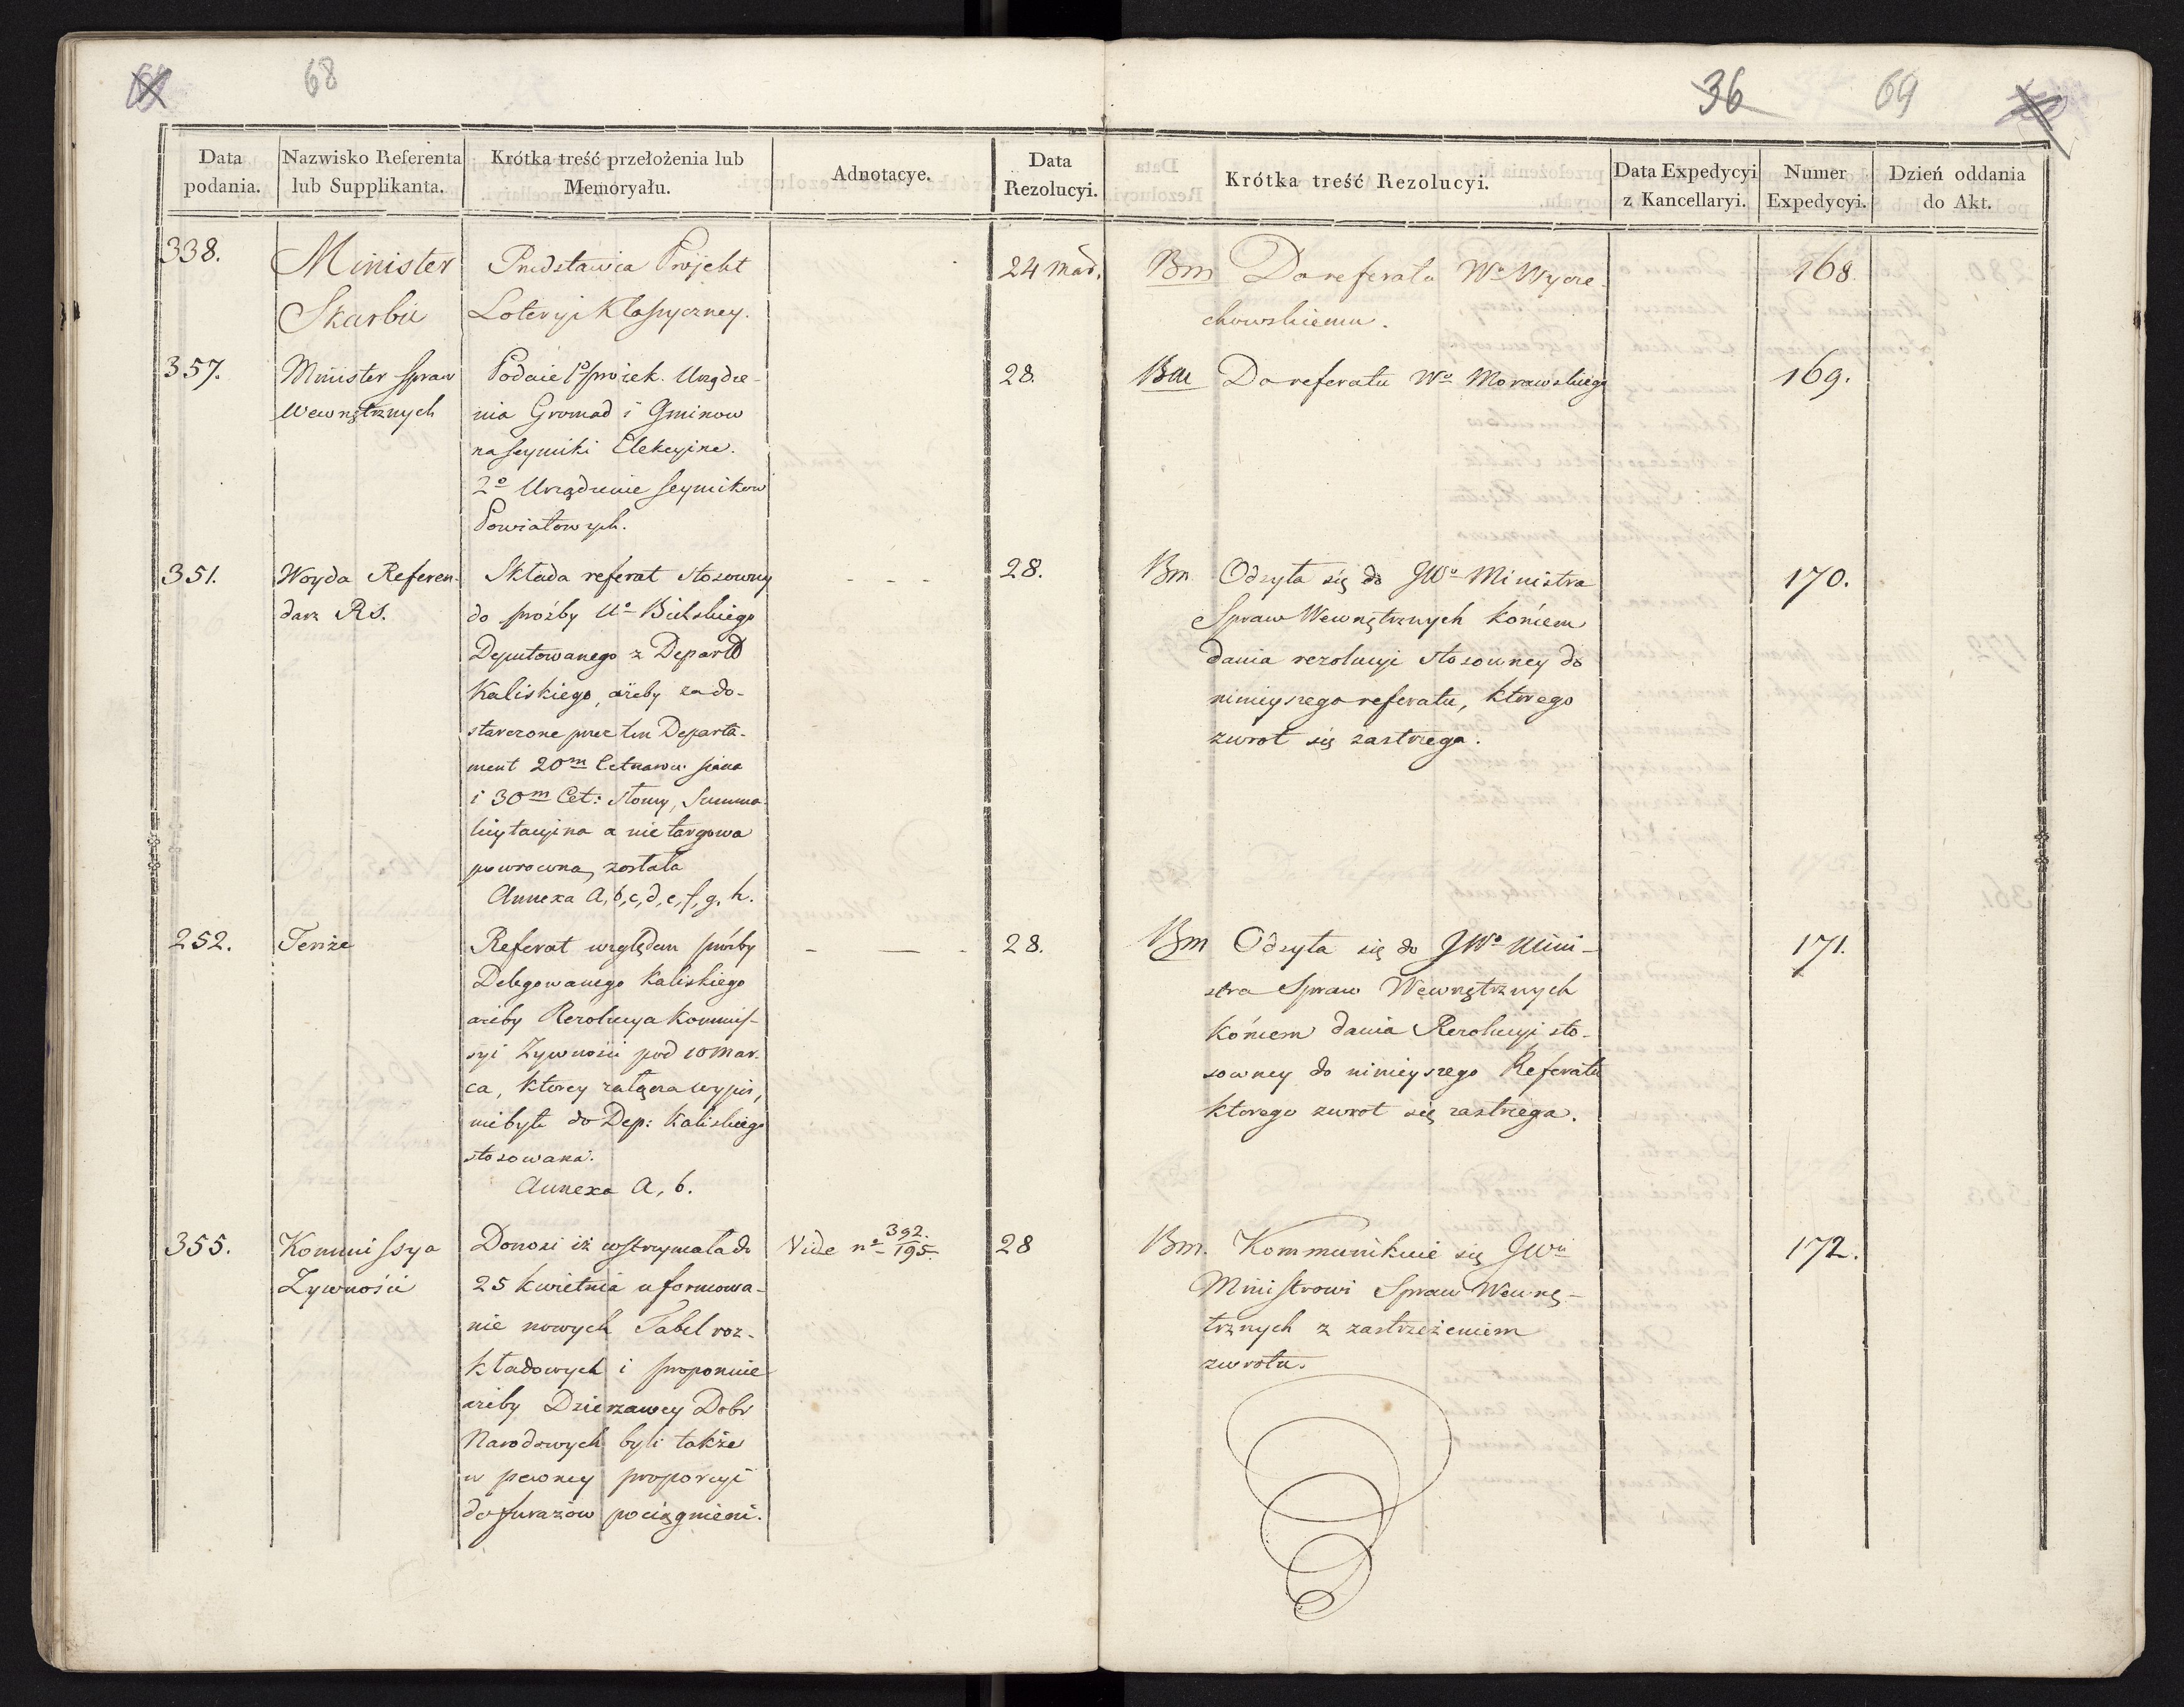 68
36
69
Data podania.
Nazwisko Referenta lub Supplikanta.
Krótka treść przełożenia lub Memoryału.
Adnotacye.
Data Rezolucyi.
Krótka treść Rezolucyi.
Data Expedycyi z Kancellaryi.
Numer Expedycyi.
Dzień oddania do Akt.
338.
Minister
Skarbu
Przedstawia Projekt
Loteryi Klassyczney.
24 Mar.
Bm Do referatu Wo Wycze-
chowskiemu.
168.
357.
Minister Spraw
Wewnętrznych
Podaie 1o projek. Urządze-
nia Gromad i Gminow
na seymiki Elekcyine.
2o Urządzenie seymikow
Powiatowych.
28.
Bm Do referatu Wo Morawskiego
169.
351.
Woyda Referen-
darz RS.
Składa referat stosowny
do prożby Uo Bielskiego
Deputowanego z Depart
Kaliskiego, ażeby za do-
starczone przez ten Departa-
ment 20m Cetnarow siana
i 30m Cet: słomy, Summa
licytacyina a nie targowa
powrocona została
Annexa A, b, c, d, e, f, g, h.
- - -
28.
Bm Odsyła się do JWo Ministra
Spraw Wewnętrznych końcem
dania rezolucyi stosowney do
ninieyszego referatu, ktorego
zwrot się zastrzega.
170.
252.
Tenże
Referat względem prośby
Delegowanego Kaliskiego
ażeby Rezolucya Kommis-
syi Zywności pod 10 Mar-
ca, ktorey załącza wypis,
niebyła do Dep: Kaliskiego
stosowana.
Annexa A, b.
- — -
28.
Bm Odsyła się do JWo Mini-
stra Spraw Wewnętrznych
końcem dania Rezolucyi sto-
sowney do ninieyszego Referatu
ktorego zwrot się zastrzega.
171.
355.
Kommissya
Zywności
Donosi iż wstrzymała do
25 kwietnia uformowa-
nie nowych Tabel roz-
kładowych i proponuie
ażeby Dzierzawcy Dobr
Narodowych byli także
w pewney proporcyi
do furażow pociągnieni.
Vide no 392.
195.
28
Bm. Kommunikuie się JWu
Ministrowi Spraw Wewnę-
trznych z zastrzeżeniem
zwrotu.
172.